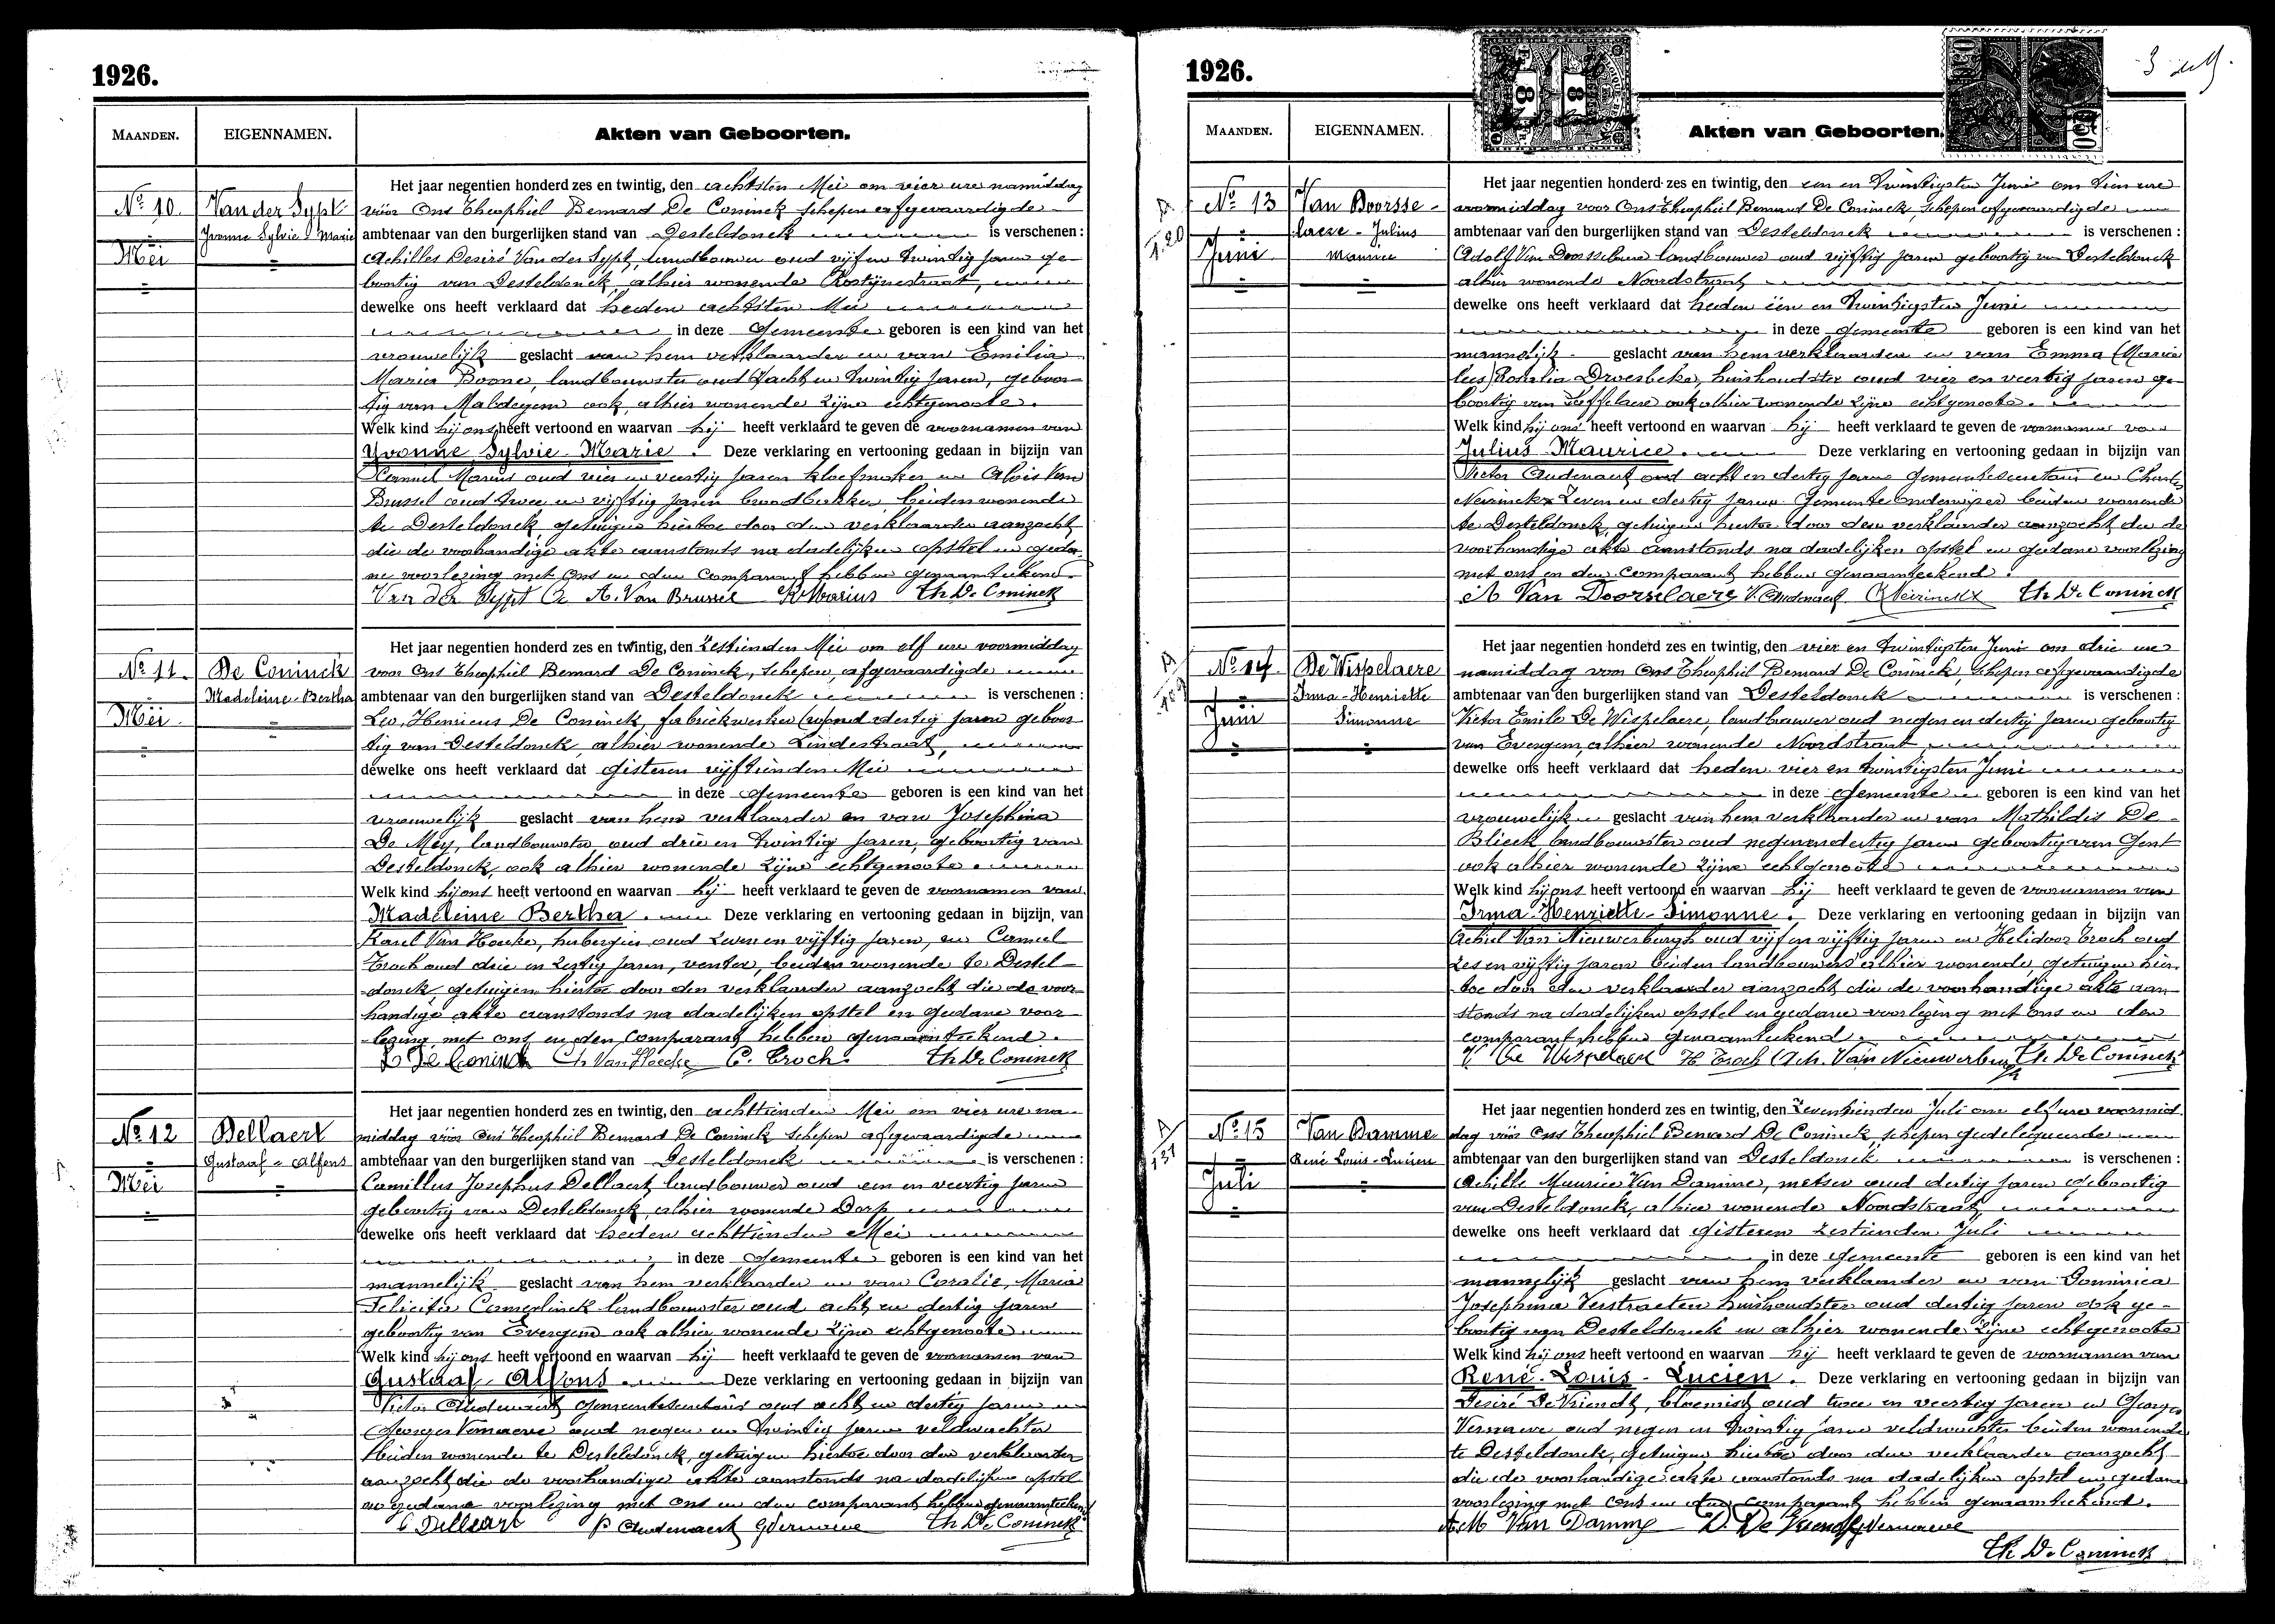 1926.
MAANDEN.
EIGENNAMEN.
Akten van Geboorten.
Nº 10.
Mei
Van der Sypt
Yvonne Sylvie Marie
Het jaar negentien honderd zes en twintig, den achtsten Mei om vier ure namiddag
vóór Ons Theophiel Bernard De Coninck schepen afgevaardigde
ambtenaar van den burgerlijken stand van Desteldonck is verschenen :
Achilles Desiré Van der Sypt, landbouwer oud vijf en twintig jaren ge-
boortig van Desteldonck, alhier wonende Rostijnestraat,
dewelke ons heeft verklaard dat heden achtsten Mei
in deze Gemeente geboren is een kind van het
vrouwelijk geslacht van hem verklaarder en van Emilia
Maria Boone, landbouwster oud acht en twintig jaren, geboor-
tig van Maldegem ook alhier wonende zijne echtgenoote.
Welk kind hij ons heeft vertoond en waarvan hij heeft verklaard te geven de voornamen van
Yvonne Sylvie Marie. Deze verklaring en vertooning gedaan in bijzijn van
Kamiel Marius oud vier en veertig jaren kloefmaker en Alois Van
Brussel oud twee en vijftig jaren broodbakker, beiden wonende
te Desteldonck, getuigen hiertoe door den verklaarder aanzocht,
die de voorhandige akte aanstonds na dadelijken opstel en geda-
ne voorlezing met Ons en den Comparant hebben genaamteekend.
Van der Sypt A. Van Brussel K Marius Th De Coninck
Nº 11.
Mei
De Coninck
Madeleine-Bertha
Het jaar negentien honderd zes en twintig, den zestienden Mei om elf ure voormiddag
voor Ons Theophiel Bernard De Coninck, schepen, afgevaardigde
ambtenaar van den burgerlijken stand van Desteldonck is verschenen :
Leo, Henricus De Coninck, fabriekwerker oud dertig jaren geboor-
tig van Desteldonck, alhier wonende Lindestraat,
dewelke ons heeft verklaard dat gisteren vijftienden Mei
in deze Gemeente geboren is een kind van het
vrouwelijk geslacht van hem verklaarder en van Josephina
De Mey, landbouwster oud drie en twintig jaren, geboortig van
Desteldonck, ook alhier wonende zijne echtgenoote.
Welk kind hij ons heeft vertoond en waarvan hij heeft verklaard te geven de voornamen van
Madeleine Bertha. Deze verklaring en vertooning gedaan in bijzijn van
Karel Van Hoecke, herbergier oud zeven en vijftig jaren, en Camiel
Troch oud drie en zestig jaren, venter, beiden wonende te Destel-
donck, getuigen hiertoe door den verklaarder aanzocht die de voor-
handige akte aanstonds na dadelijken opstel en gedane voor-
lezing met ons en den Comparant hebben genaamteekend.
L De Coninck Ch Van Hoecke C. Troch. Th De Coninck
Nº 12
Mei
Dellaert
Gustaaf - Alfons
Het jaar negentien honderd zes en twintig, den achttienden Mei om vier ure na-
middag vóór Ons Theophiel Bernard De Coninck schepen afgevaardigde
ambtenaar van den burgerlijken stand van Desteldonck is verschenen :
Camillus Josephus Dellaert landbouwer oud een en veertig jaren
geboortig van Desteldonck, alhier wonende Dorp
dewelke ons heeft verklaard dat heden achttienden Mei
in deze Gemeente geboren is een kind van het
mannelijk geslacht van hem verklaarder en van Coralie, Maria
Felicita Camerlinck landbouwster oud acht en dertig jaren
geboortig van Evergem ook alhier wonende zijne echtgenoote
Welk kind hij ons heeft vertoond en waarvan hij heeft verklaard te geven de voornamen van
Gustaaf - Alfons. Deze verklaring en vertooning gedaan in bijzijn van
Victor Audenaert, gemeentesecretaris oud acht en dertig jaren en
Georges Vernaeve oud negen en twintig jaren veldwachter
beiden wonende te Desteldonck, getuigen hiertoe door den verklaarder
aanzocht die de voorhandige akte aanstonds na dadelijken opstel
en gedane voorlezing met Ons en den comparant hebben genaamteekend
C Dellaert V Audenaert G Vernaeve Th De Coninck
1926.
3
MAANDEN.
EIGENNAMEN.
Akten van Geboorten.
Nº 13
Juni
Van Doorsse-
laere - Julius
Maurice
Het jaar negentien honderd zes en twintig, den een en twintigsten Juni om tien ure
voormiddag voor Ons Theophiel Bernard De Coninck, schepen afgevaardigde
ambtenaar van den burgerlijken stand van Desteldonck is verschenen :
Adolf Van Doorsselaere landbouwer oud vijftig jaren geboortig van Desteldonck
alhier wonende Noordstraat
dewelke ons heeft verklaard dat heden één en twintigsten Juni
in deze gemeente geboren is een kind van het
mannelijk geslacht van hem verklaarder en van Emma Maria
Rosalia Droesbeke, huishoudster oud vier en veertig jaren ge-
boortig van Zaffelaere ook alhier wonende zijne echtgenoote.
Welk kind hij ons heeft vertoond en waarvan hij heeft verklaard te geven de voornamen van
Julius Maurice. Deze verklaring en vertooning gedaan in bijzijn van
Victor Audenaert oud acht en dertig jaren gemeentesecretaris en Charles
Neirinckx zeven en dertig jaren Gemeente onderwijzer beiden wonende
te Desteldonck, getuigen hiertoe door den verklaarder aanzocht die de
voorhandige akte aanstonds na dadelijken opstel en gedane voorlezing
met ons en den comparant hebben genaamteekend.
A Van Doorselaere V. Audenaert Neirinckx Th De Coninck
Nº 14.
Juni
De Wispelaere
Irma-Henriette
Simonne
Het jaar negentien honderd zes en twintig, den vier en twintigsten Juni om drie ure
namiddag voor Ons Theophiel Bernard De Coninck, schepen afgevaardigde
ambtenaar van den burgerlijken stand van Desteldonck is verschenen :
Victor Emile De Wispelaere, landbouwer oud negen en dertig jaren geboortig
van Evergem, alhier wonende Noordstraat
dewelke ons heeft verklaard dat heden vier en twintigsten Juni
in deze Gemeente geboren is een kind van het
vrouwelijk geslacht van hem verklaarder en van Mathildis De
Blieck landbouwster oud negenendertig jaren geboortig van Gent
ook alhier wonende zijne echtgenoote
Welk kind hij ons heeft vertoond en waarvan hij heeft verklaard te geven de voornamen van
Irma-Henriette-Simonne. Deze verklaring en vertooning gedaan in bijzijn van
Achiel Van Nieuwerburgh oud vijf en vijftig jaren en Helidoor Troch oud
zes en vijftig jaren beiden landbouwers alhier wonende, getuigen hier-
toe door den verklaarder aanzocht, die de voorhandige akte aan-
stonds na dadelijken opstel en gedane voorlezing met ons en den
comparant hebben genaamteekend.
V. De Wispelaere H. Troch Ach. Van Nieuwerburgh Th. De Coninck
Nº 15
Juli
Van Damme
René Louis-Lucien
Het jaar negentien honderd zes en twintig, den zeventienden Juli om elf ure voormid-
dag vóór Ons Theophiel Bernard De Coninck, schepen gedelegueerde
ambtenaar van den burgerlijken stand van Desteldonck is verschenen :
Achille Maurice Van Damme, metser oud dertig jaren geboortig
van Desteldonck, alhier wonende Noordstraat,
dewelke ons heeft verklaard dat gisteren zestienden Juli
in deze Gemeente geboren is een kind van het
mannelijk geslacht van hem verklaarder en van Dominica
Josephina Verstraeten huishoudster oud dertig jaren ook ge-
boortig van Desteldonck en alhier wonende zijne echtgenoote
Welk kind hij ons heeft vertoond en waarvan hij heeft verklaard te geven de voornamen van
René-Louis-Lucien. Deze verklaring en vertooning gedaan in bijzijn van
Desiré De Vriendt, bloemist oud twee en veertig jaren en Georges
Vernaeve oud negen en twintig jaren veldwachter beiden wonende
te Desteldonck, getuigen hiertoe door den verklaarder aanzocht
die de voorhandige akte aanstonds na dadelijken opstel en gedane
voorlezing met Ons en den comparant hebben genaamteekend.
A.M Van Damme D. De Vriendt G Vernaeve
Th De Coninck